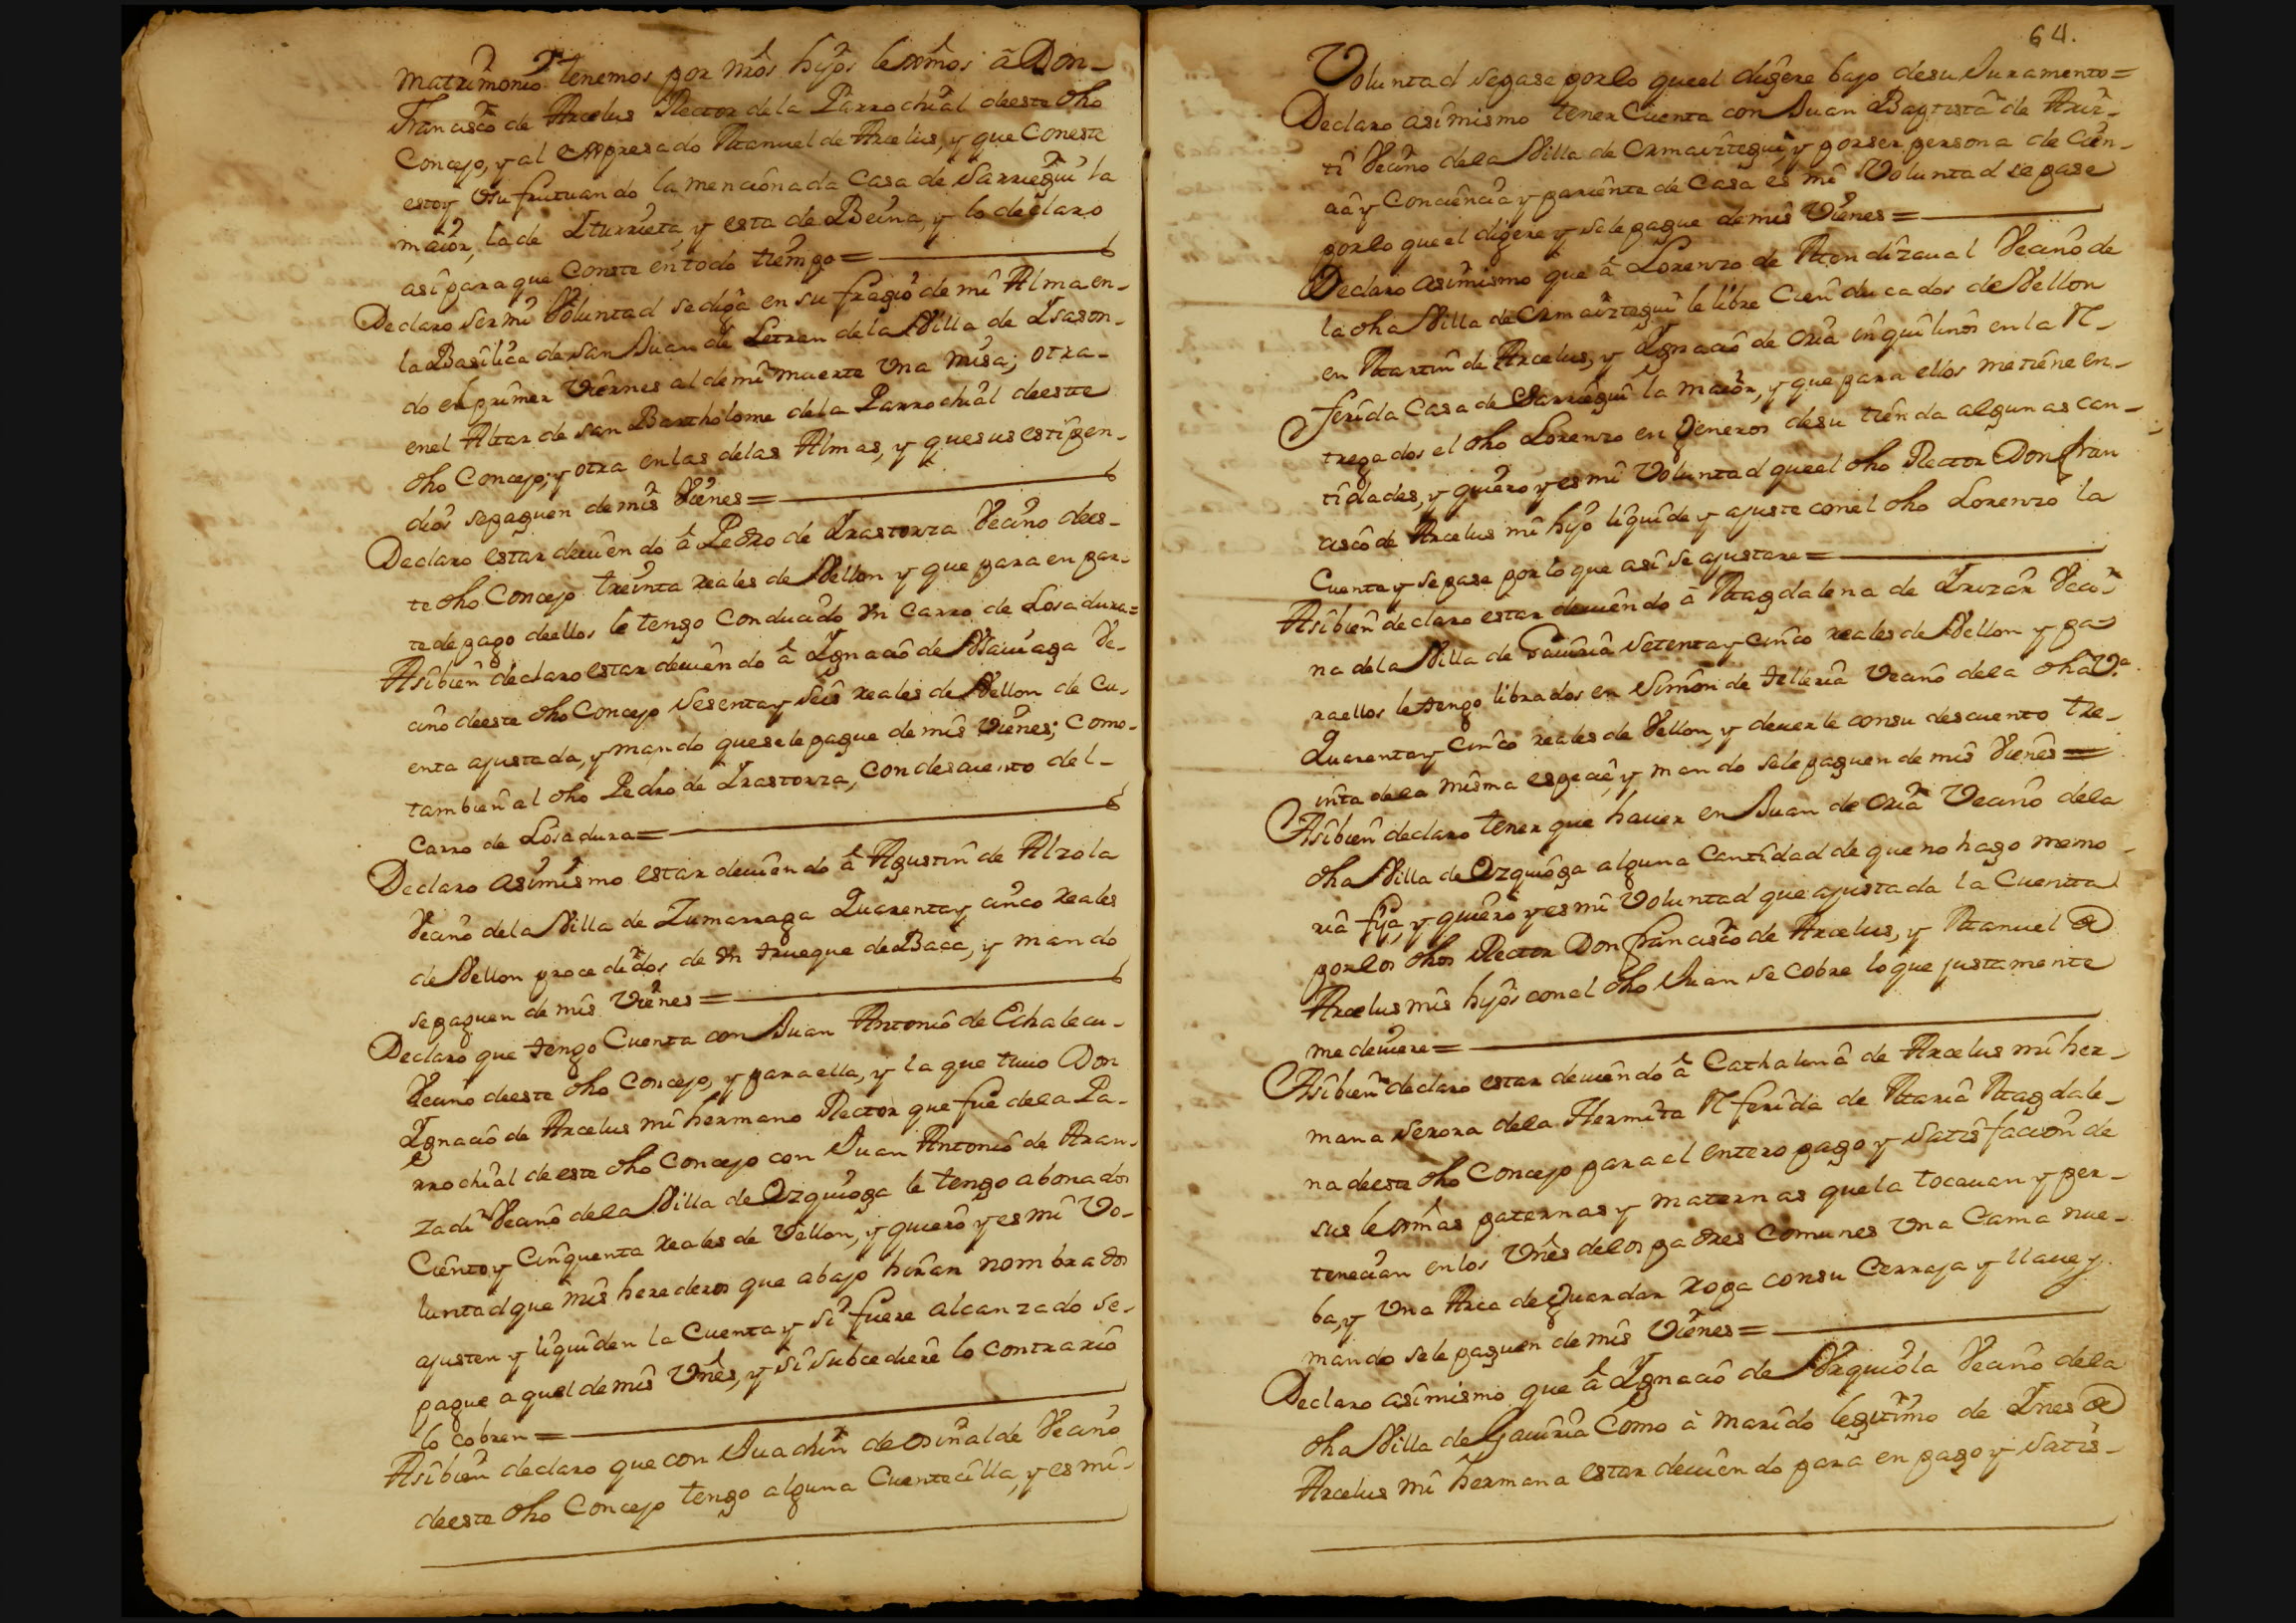 matrimonio tenemos por nrôs hijos lexmôs â Don
Francisco de Arcelus Rector dela Parrochial deeste dho
Concejo, y al Expresado Manuel de Arcelus, y que Coneste
estoy Usufrutuando la mencionada Casa de Sarriegui la
maior, la de Iturrieta, y esta de Beina, y lo declaro
asi para que Conste en todo tiempo =
Declaro ser mi Voluntad se diga en su fragio de mi Alma en
la Basilica de san Juan de Letran dela Villa de Isason
do el primer Viernes al de mi muerte Una misa; otra
enel Altar de san Bartholome dela Parrochial deeste
dho Concejo; y otra enlas delas Almas, y quesus estipen-
dios sepaguen demis Vienes =
Declaro estar deuiendo â Pedro de Irastorza Vecino dees-
te dho Concejo treinta reales de Vellon y que para en par-
te de pago deellos le tengo Conducido Un Carro de Losadura =
Asibien declaro estar deuiendo â Ignacio de Mauiaga Ve-
cino deeste dho Concejo Sesentay Seis reales de Vellon de Cu-
enta ajustada, y mando quesele pague de mis Vienes; Como
tambien al dho Pedro de Irastorza, Con descuento del
Carro de Losadura =
Declaro asimismo estar deuiendo â Agustin de Alzola
Vecino dela Villa de Zumarraga Quarentay cinco reales
de Vellon procedidos de Un trueque de Baca, y mando
sepaguen de mis Vienes =
Declaro que tengo Cuenta con Juan Antonio de Echalecu
Vecino deeste dho Concejo, y para ella, y la que tuuo Don
Ignacio de Arcelus mi hermano Rector que fue dela Pa-
rrochial de este dho Concejo con Juan Antonio de Aran-
zadi Vecino dela Villa de Ozquioga le tengo abonados
Ciento y Cinquenta reales de Vellon, y quiero y es mi Vo-
luntad que mis herederos que abajo hiran nombrados
ajusten y liquiden la Cuenta y si fuere alcanzado se
pague aquel de mis Vnês, y si subcediere lo Contrario
lo cobren =
Asibien declaro que con Juachin de osinalde Vecino
deeste dho Concejo tengo alguna Cuentecilla, y es mi
64.
Voluntad sepase por lo queel digere bajo desu Juramento =
Declaro asimismo tener Cuenta con Juan Baptista de Ariz-
ti Vecino dela Villa de Ormaiztegui, y por ser persona de Cien-
cia y Conciencia y pariente de Casa es mi Voluntad se pase
por lo que el digere y sele pague demis Vienes =
Declaro asimismo que â Lorenzo de Mendizaual Vecino de
la dha Villa de Ormaiztegui le libre Cien ducados de Vellon
en Martin de Arcelus, y Ignacio de Oria inquilinos en la R
ferida Casa de Sarriegui la maior, y que para ellos me tiene en-
tregados el dho Lorenzo en generos desu tienda algunas can-
tidades, y quiero y es mi Voluntad queel dho Rector Don fran
cisco de Arcelus mi hijo liquide y ajuste conel dho Lorenzo la
Cuenta y se pase por lo que asi se ajustare =
Asibien declaro estar deuiendo â Magdalena de Irizar Veci-
na dela Villa de Gauiria Setentay cinco reales de Vellon y pa
raellos le tengo librados en Simon de telleria Vecino dela dha Va.
Quarentay Cinco reales de Vellon, y deuerle consu descuento tre-
inta dela misma especie, y mando sele paguen de mis Vienes =
Asibien declaro tener que hauer en Juan de Oria Vecino dela
dha Villa de Ozquioga alguna Cantidad de que no hago memo
ria fija, y quiero y es mi Voluntad que ajustada la Cuenta
porlos dhos Rector Don francisco de Arcelus, y Manuel de
Arcelus mis hijos conel dho Juan se cobre loque justamente
me deuiere =
Asibien declaro estar deuiendo â Cathalina de Arcelus mi her-
mana serora dela Hermita Rferida de Maria Magdale-
na deeste dho Concejo para el entero pago y satisfacion de
sus lexmâs paternas y maternas quela tocauan y per-
tenecian enlos Vnês delos padres Comunes Una Cama nue-
ba, y Una Arca de guardar ropa consu Cerraja y llaue y
mando sele paguen de mis Vienes =
Declaro asimismo que â Ignacio de Vrquiola Vecino dela
dha Villa de Gauiria Como â marido legitimo de Ines de
Arcelus mi hermana estar deuiendo para en pago y satis-